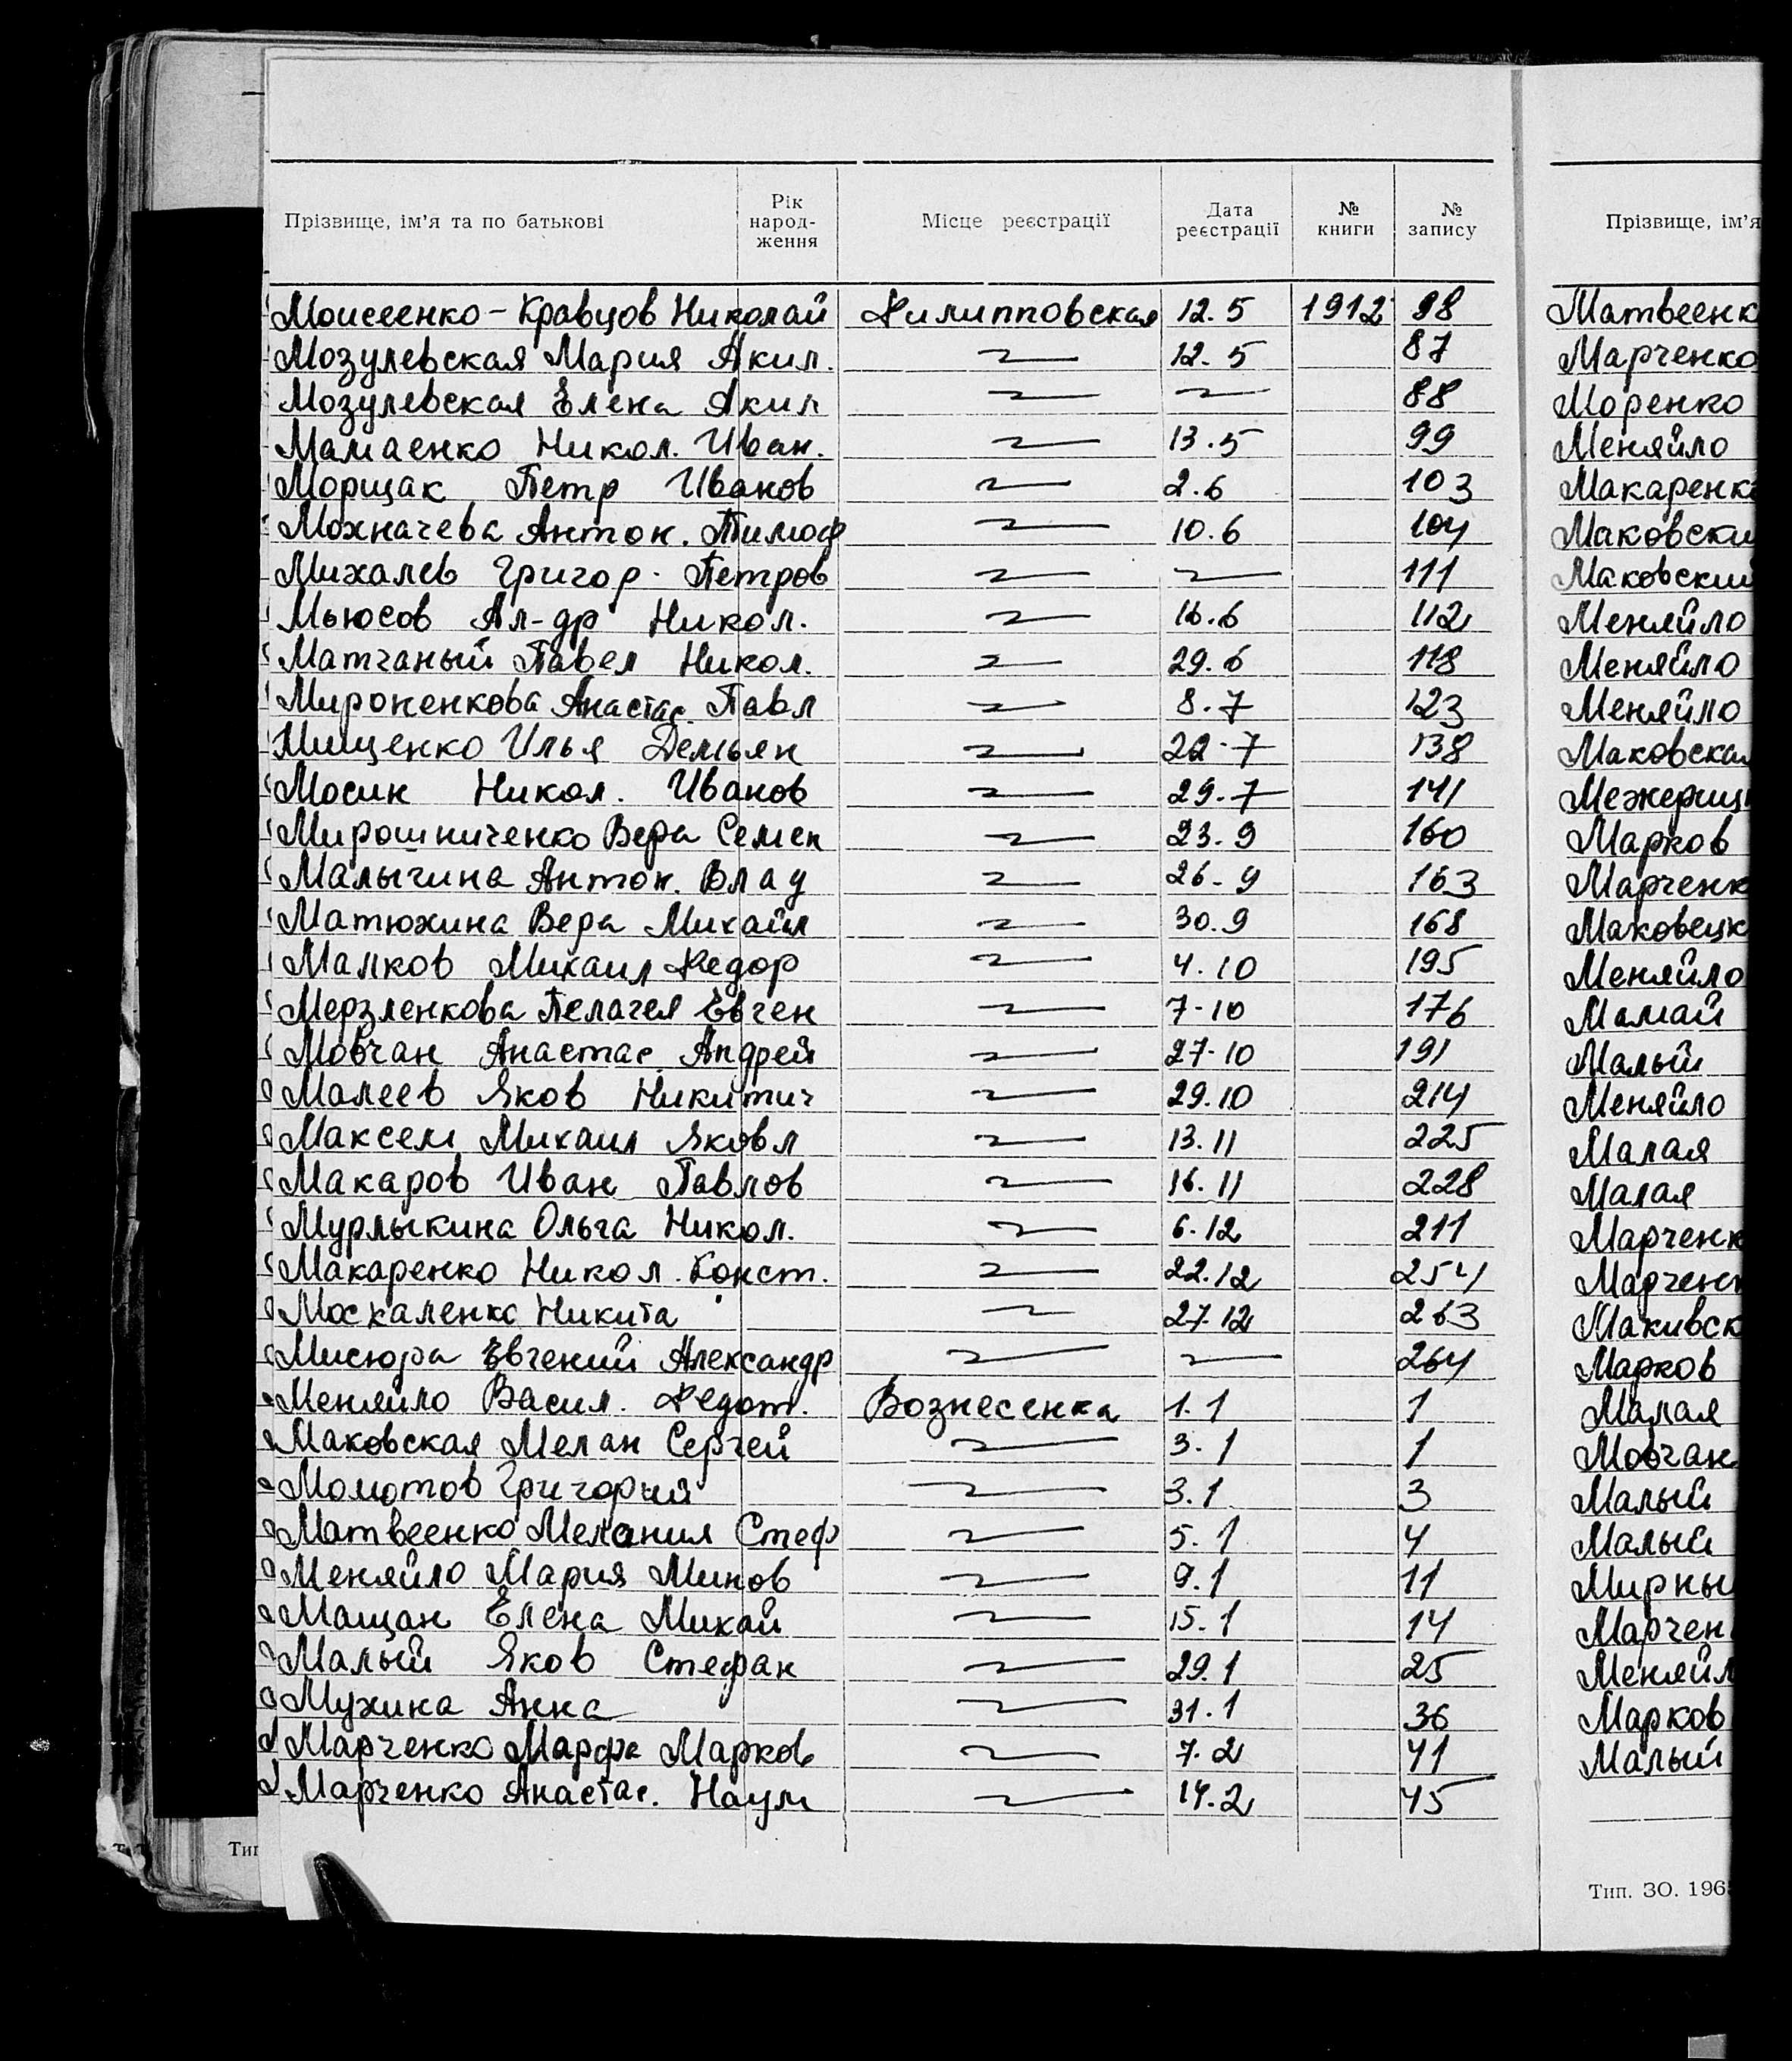 Прізвище, ім'я та по батькові | Рік народ- ження | Місце реєстрації | Дата реєстрації | № книги | № запису
Моисеенко-Кравцов Николай Филипповская 12.5 1912 98
Мозулевская Мария Акил. 〃 12.5 87
Мозулевская Елена Акил 〃 〃 88
Мамаенко Никол. Иван. 〃 13.5 99
Морщак Петр Иванов 〃 2.6 103
Мохначева Антон. Тимоф 〃 10.6 104
Михалев Григор. Петров 〃 〃 111
Мьюсов Ал-др Никол. 〃 16.6 112
Матчаный Павел Никол. 〃 29.6 118
Мироненкова Анастас. Павл 〃 8.7 123
Мищенко Илья Демьян 〃 22.7 138
Мосин Никол. Иванов 〃 29.7 141
Мирошниченко Вера Семен 〃 23.9 160
Малыгина Антон. Влад 〃 26.9 163
Матюхина Вера Михайл 〃 30.9 168
Малков Михаил Федор 〃 4.10 195
Мерзленкова Пелагея Евген 〃 7-10 176
Мовчан Анастас. Андрей 〃 27-10 191
Малеев Яков Никитич 〃 29.10 214
Максем Михаил Яковл 〃 13.11 225
Макаров Иван Павлов 〃 16.11 228
Мурлыкина Ольга Никол. 〃 6.12 211
Макаренко Никол. Конст. 〃 22.12 254
Москаленко Никита 〃 27.12 263
Мисюра Евгений Александр 〃 〃 264
Меняйло Васил. Федот. Вознесенка 1.1 1
Маковская Мелан Сергей 〃 3.1 1
Молотов Григорий 〃 3.1 3
Матвеенко Мелания Стеф 〃 5.1 4
Меняйло Мария Минов 〃 9.1 11
Мащан Елена Михай 〃 15.1 14
Малый Яков Стефан 〃 29.1 25
Мухина Анна 〃 31.1 36
Марченко Марфа Марков 〃 7.2 41
Марченко Анастас. Наум 〃 14.2 45
Тип
Прізвище, ім'я
Матвеенк
Марченко
Моренко
Меняйло
Макаренко
Маковски
Маковский
Меняйло
Меняйло
Меняйло
Маковская
Межериц
Марков
Марченк
Маковецк
Меняйло
Мамай
Малый
Меняйло
Малая
Малая
Марченк
Марчен
Макивск
Марков
Малая
Мовчан
Малый
Малый
Мирны
Марчен
Меняйл
Марков
Малый
Тип. ЗО. 196